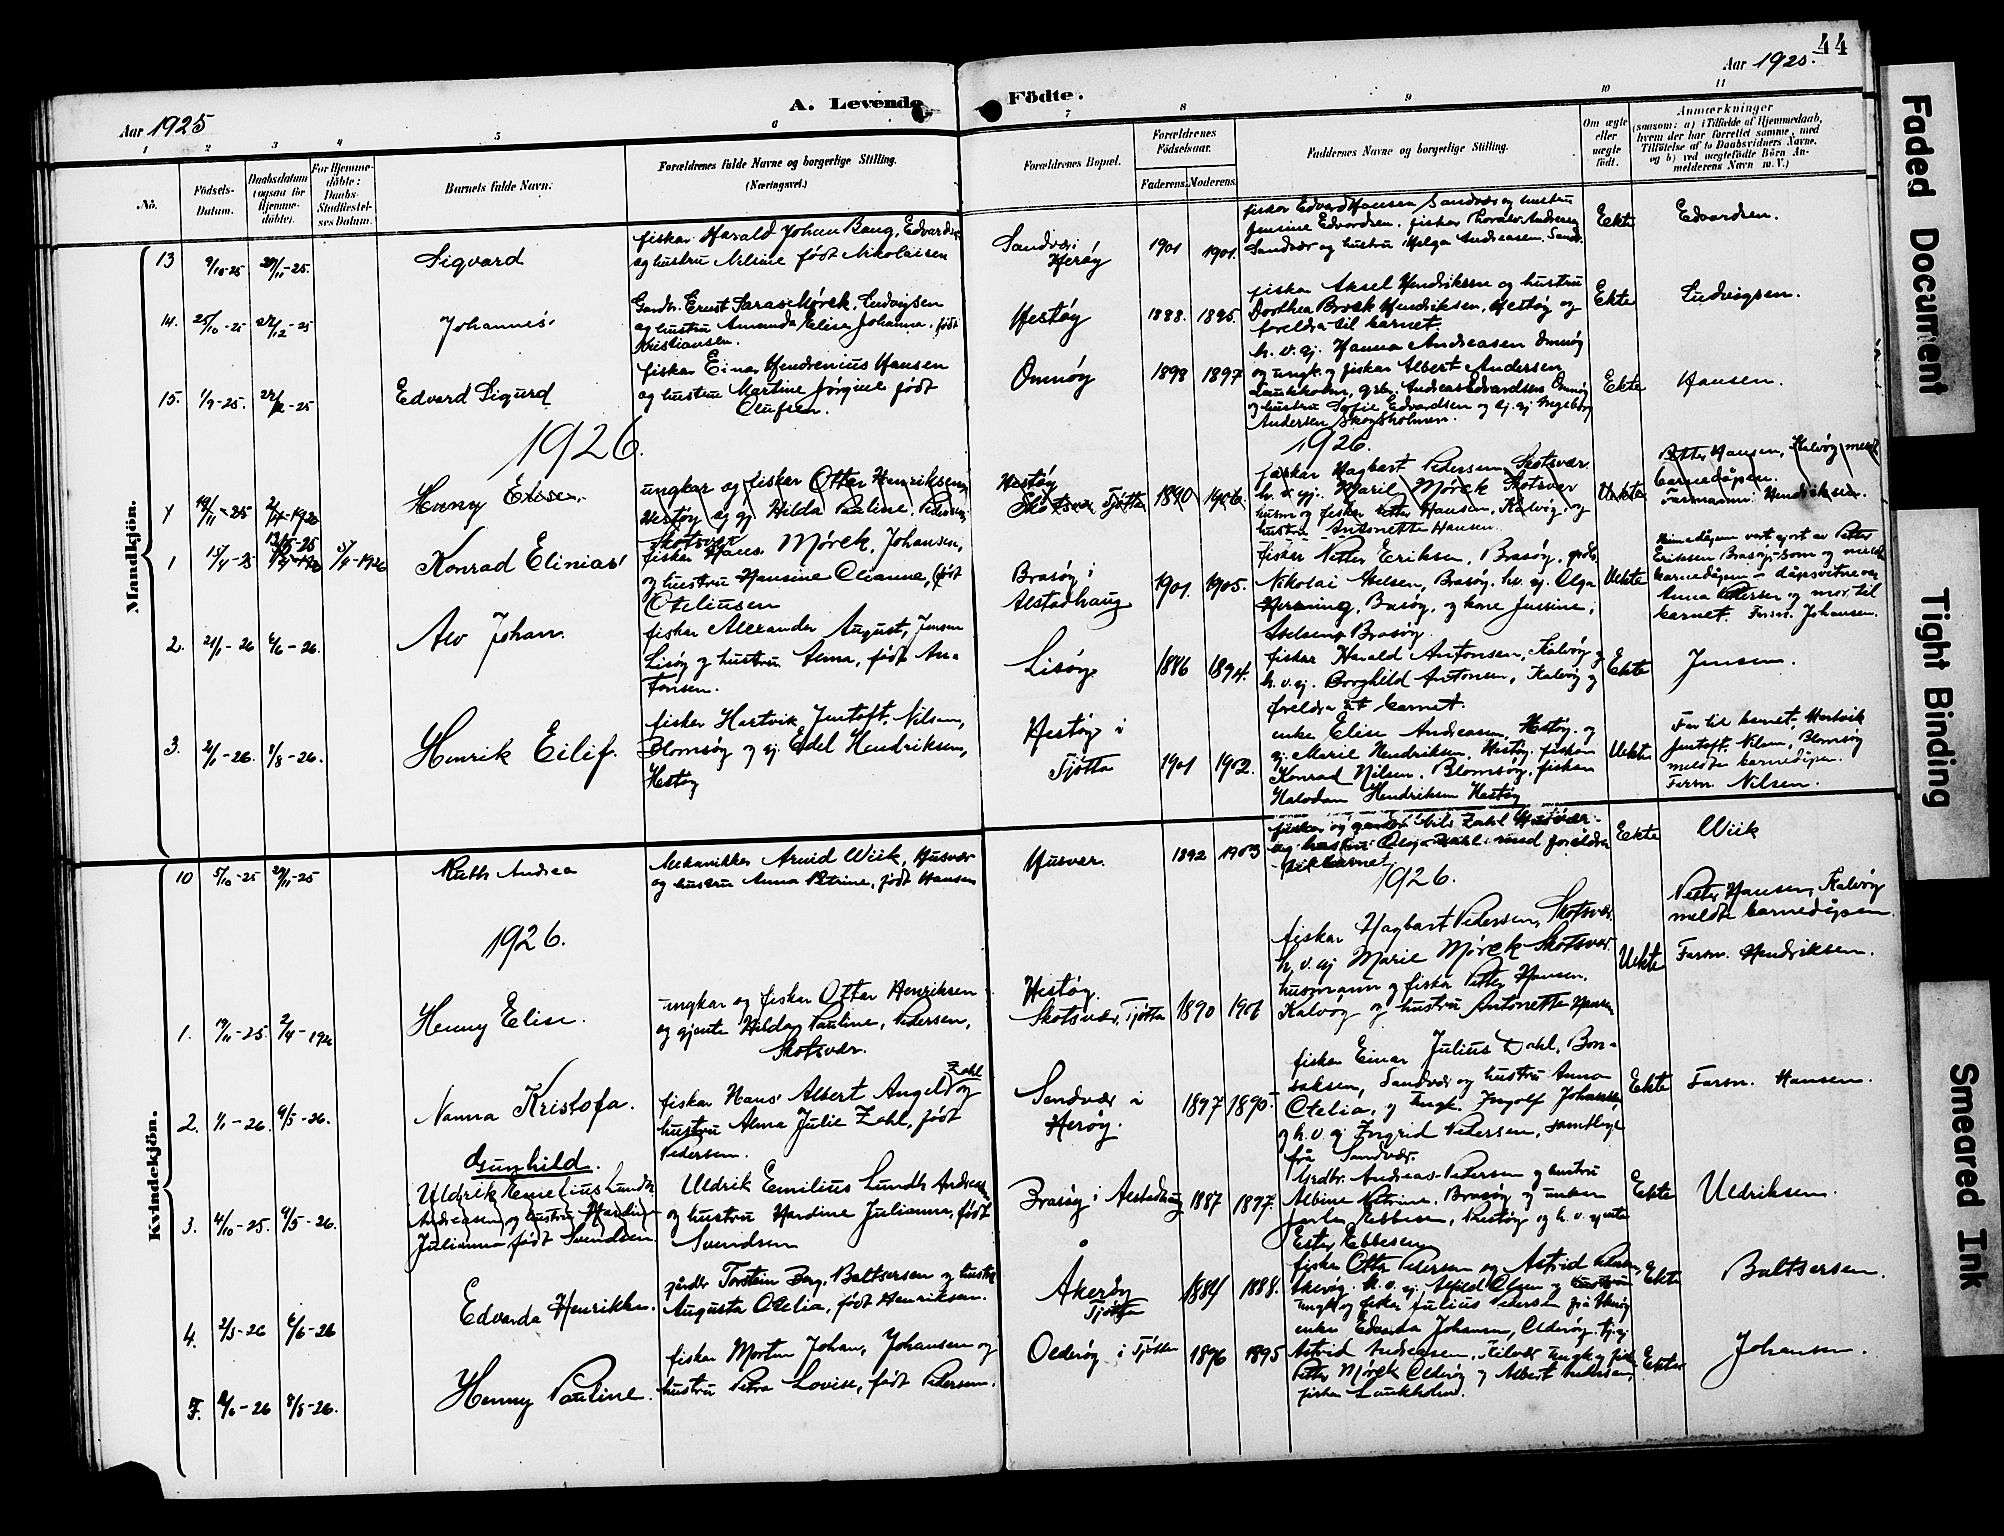 44
Aar 1925
A. Levende Födte.
Aar 1925.
1 2 3 4 5 6 7 8 9 10 11
No.
Födsels-
Datum.
Daabsdatum
(ogsaa for
Hjemme-
döbte).
For Hjemme-
döbte:
Daabs-
Stadfæstel-
ses Datum.
Barnets fulde Navn.
Forældrenes fulde Navne og borgerlige Stilling.
(Næringsvei.)
Forældrenes Bopæl.
Forældrenes
Födselsaar.
Faderens. Moderens.
Faddernes Navne og borgerlige Stilling.
Om ægte
eller
uægte
födt.
Anmærkninger
(saasom: a) i Tilfælde af Hjemmedaab,
hvem der har forrettet samme, med
Tilföielse af to Daabsvidners Navne,
og b) ved uægtefödte Börn An-
melderens Navn m. V.)
Mandkjön.
13 9/10-25 29/11-25. Sigvard
fisker Harald Johan Bang, Edvardsen
og hustru Nilsine født Nikolaisen
Sandvær i
Herøy
1901 1901.
fisker Edvard Hansen Sandvær og hustru
Jensine Edvardsen. fisker Thoralv Andreasen
Sandvær og hustru Helga Andreasen. Sandv.
Ekte
Edvardsen.
14. 25/10-25 27/12-25 Johannes
Gardb. Ernst Sarasi Mørck, Ludvigsen
og hustru Amanda Elise Johanna, født
Kristiansen.
Hestøy
1888. 1895.
fisker Aksel Hendriksen og hustru
Dorthea Brock Hendriksen, Hestøy og
foreldre til barnet.
Ekte
Ludvigsen.
15. 1/9-25. 27/12-25 Edvard Sigurd
fisker Einar Hendrenius Hansen
og hustru Martine Jørgine født
Olufsen.
Omnøy
1898 1897
h. v. gj. Hanna Andreasen Omnøy
og ungk. og fisker Albert Andersen
Laukholm, grb. Andreas Edvardsen Omnøy
og hustru Sofie Edvardsen og gj. Ingeborg
Andersen Skogsholmen.
Ekte
Hansen.
1926.
1926.
19/11-25 2/4-1926 Henny Elise.
ungkar og fisker Otter Henriksen
Hestøy og gj. Hilda Pauline. Pedersen
Skotsvær
Hestøy
Skotsvær Tjøtta
1890 1906
fisker Hagbart Pedersen Skotsvær
h. v. gj. Maril Mørck Skotsvær
husm og fisker Petter Hansen, Kalvøy og
hustru Antonette Hansen.
Uekte
Petter Hansen, Kalvøy meldt
barnedåpen.
Farsnamn: Hendriksen.
1 15/4-25 5/4-1926 Konrad Elinias
fisker Hans Mørck, Johansen,
og hustru Hansine Elianne, født
Oteliusen
Brasøy i
Alstadhaug
1901. 1905.
fisker Petter Eriksen, Brasøy, grdb.
Nikolai Nelsen, Brasøy, h.v. gj. Olga
Herning, Brasøy, og kone Jensine,
Axelsen, Brasøy.
Uekte
Heimedåpen vert gjort av Petter
Eriksen Brasøy, som og meldte
barnedåpen – dåpsvitne var
Anna Petersen og mor til
barnet. Farsn. Johansen.
2. 21/1-26 6/6-26. Alv Johan
fisker Alexander August, Jensen
Lisøy og hustru Alma, født An-
tonsen.
Lisøy
1886 1894.
fisker Harald Antonsen, Kalvøy og
h. v. gj. Borghild Antonsen, Kalvøy og
foreldra åt barnet.
Ekte
Jensen.
3. 2/1-26. 1/8-26. Henrik Eilif.
fisker Hartvik Jentoft. Nilsen,
Blomsøy og gj. Edel Hendriksen,
Hestøy
Hestøy i
Tjøtta
1901 1902.
enke Elise Andreasen, Hestøy. og
gj. Marie Hendriksen, Hestøy. fisker
Konrad Nilsen. Blomsøy, fisker
Halvdan Hendriksen Hestøy
Uekte
Far til barnet, Hartvik
Jentoft. Nilsen, Blomsøy
meldte barnedåpen.
Farsn. Nilsen.
Kvindekjön.
10 5/10-25 29/11-25 Ruth Andrea
Mekanikker Arvid Wiik, Husvær
og hustru Anna Petrine, født Hansen
Husvær.
1892 1903
til barnet
Ekte
Wiik
1926.
1926.
1. 19/11-25. 2/4-1926 Henny Elise.
ungkar og fisker Otter Henriksen
og gjente Hilda Pauline, Pedersen,
Skotsvær.
Hestøy.
Skotsvær, Tjøtta
1890 1906
fisker Hagbart Pedersen, Skotsvær
h. v. gj Marie Mørck Skotsvær
husmann og fisker Petter Hansen,
Kalvøy og hustru Antonette Hansen
Uekte
Petter Hansen, Kalvøy
meldte barnedåpen.
Farsn. Hendriksen.
2. 1/1-26. 9/5-26. Nanna Kristofa.
fisker Hans Albert Angel Zahl og
hustru Alma Julie Zahl, født
Pedersen.
Sandvær i
Herøy.
1897 1895
fisker Einar Julius Dahl, Bon-
saksen, Sandvær og hustru Anna
Otelia, og ungk. Ingolf Johansen
og h. v. gj Ingrid Pedersen, samtlige
frå Sandvær.
Ekte
Farsn. Hansen.
3. 4/10-25. 9/5-26. Gunhild.
Uldrik Emelius Lundt
Andreasen og hustru Hardine
Julianna født Svendsen
Uldrik Emilius Lundt Andreasen
og hustru Hardine Julianna, født
Svendsen
Brasøy i Alstadhaug
1887 1897.
Grdbr. Andreas Pedersen og hustru
Albine Petrine. Brasøy og enken
Ebbesen, Prestøy og h. v. gjente
Ester Ebbesen
Ekte
Uldriksen.
4. 2/3-26 6/6-26 Edvarda Henrikke.
gårdb. Torstein Berg. Baltsersen og hustru
Augusta Otelia, født Henriksen.
Åkerøy
Tjøtta
1884 1888.
fisker Otto Pedersen og Astrid Pedersen
Akerøy. h. v. gj. Alfild Olsen og
ungk og fisker Julius Pedersen frå Åkerøy
Ekte
Baltsersen.
F. 6/6-26 8/8-26. Henny Pauline.
fisker Morten Johan, Johansen og
hustru Petra Lovise, født Pedersen.
Olderøy i Tjøtta
1896 1895
enke Edvarda Johansen, Olderøy.
Astrid Andreasen, ungk og fisk
Peter Mørck Olderøy og Albert Andersen,
fisker Laukholm.
Ekte
Johansen.
Faded Document
Tight Binding
Smeared Ink